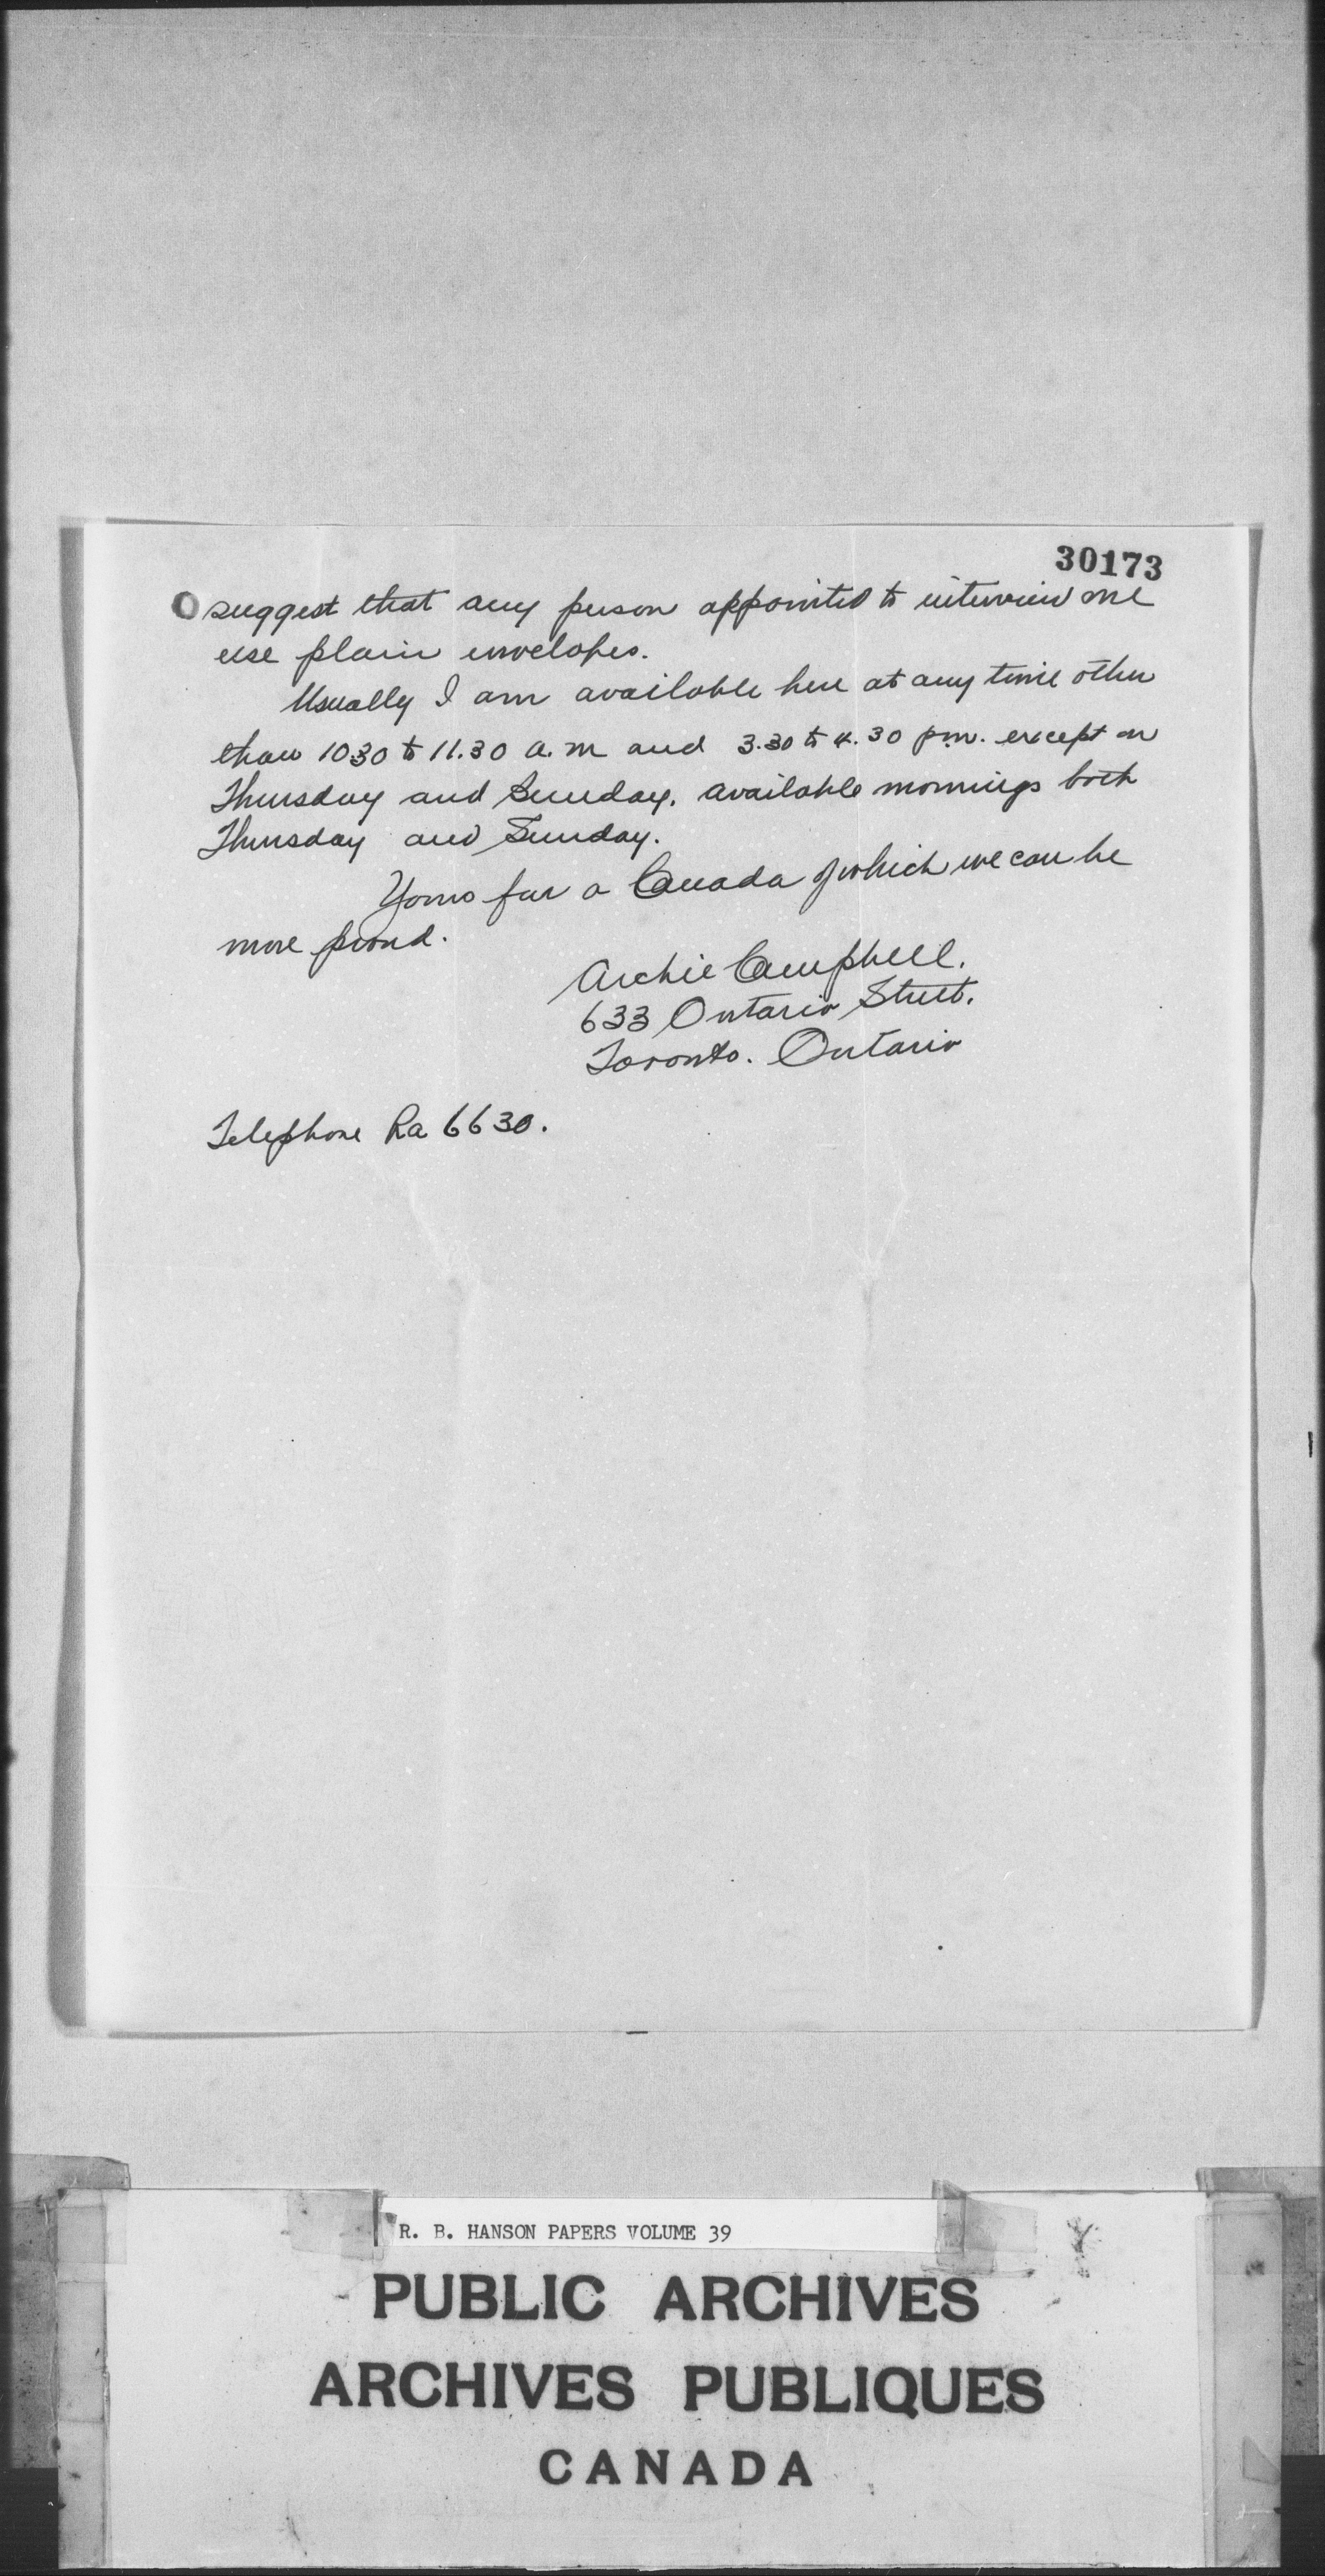 30173
suggest that any person appointed to interview me
use plain envelopes.
Usually I am available here at any time other
than 10.30 to 11.30 a.m and 3.30 to 4.30 p.m. except on
Thursday and Sunday. available mornings both
Thursday and Sunday.
Yours for a Canada of which we can be
more proud.
Archie Campbell.
633 Ontario Street.
Toronto. Ontario
Telephone Ra 6630.
R. B. HANSON PAPERS VOLUME 39
PUBLIC ARCHIVES
ARCHIVES PUBLIQUES
CANADA